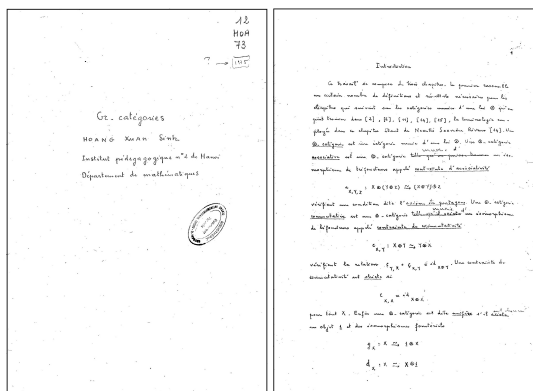 12
HOA
73
? → 1975
Gr-catégories
HOANG XUAN Sinh
Institut pédagogique n°2 de Hanoi
Département de mathématiques
Introduction
Ce travail se compose de trois chapitres. Le premier rassemble
un certain nombre de définitions et résultats nécessaires pour les
chapitres qui suivent sur les catégories munies d'une loi ⊗ qu'on
peut trouver dans
la terminologie em-
ployée dans ce chapitre étant de Neantro Saavedra Rivano. Une
⊗-catégorie est une catégorie munie d'une loi ⊗. Une ⊗-catégorie
associative est une ⊗-catégorie munie d'un iso-
morphisme de trifoncteurs appelé contrainte d'associativité
a_{X,Y,Z} : X⊗(Y⊗Z) ⥲ (X⊗Y)⊗Z
vérifiant une condition dite l'axiome du pentagone. Une ⊗-catégorie
commutative est une ⊗-catégorie munie d'un isomorphisme
de bifoncteurs appelé contrainte de commutativité
c_{X,Y} : X⊗Y ⥲ Y⊗X
vérifiant la relation c_{Y,X} ∘ c_{X,Y} = id_{X⊗Y}. Une contrainte de
commutativité est stricte si
c_{X,X} = id_{X⊗X}
pour tout X. Enfin une ⊗-catégorie est dite unifère s'il existe
un objet 1 et des isomorphismes fonctoriels
g_X : X ⥲ 1⊗X
d_X : X ⥲ X⊗1